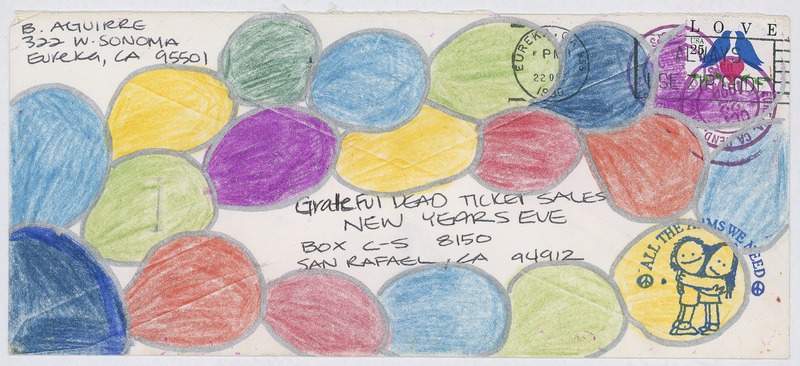 B. AGUIRRE
322 W. SONOMA
EUREKA, CA 95501
EUREKA, CA
PM
22 O
1990
LOVE
USA
25
ALWAYS
USE ZIP CODE
Grateful DEAD TICKET SALES
NEW YEARS EVE
BOX C-S 8150
SAN RAFAEL, CA 94912
ALL THE ARMS WE NEED